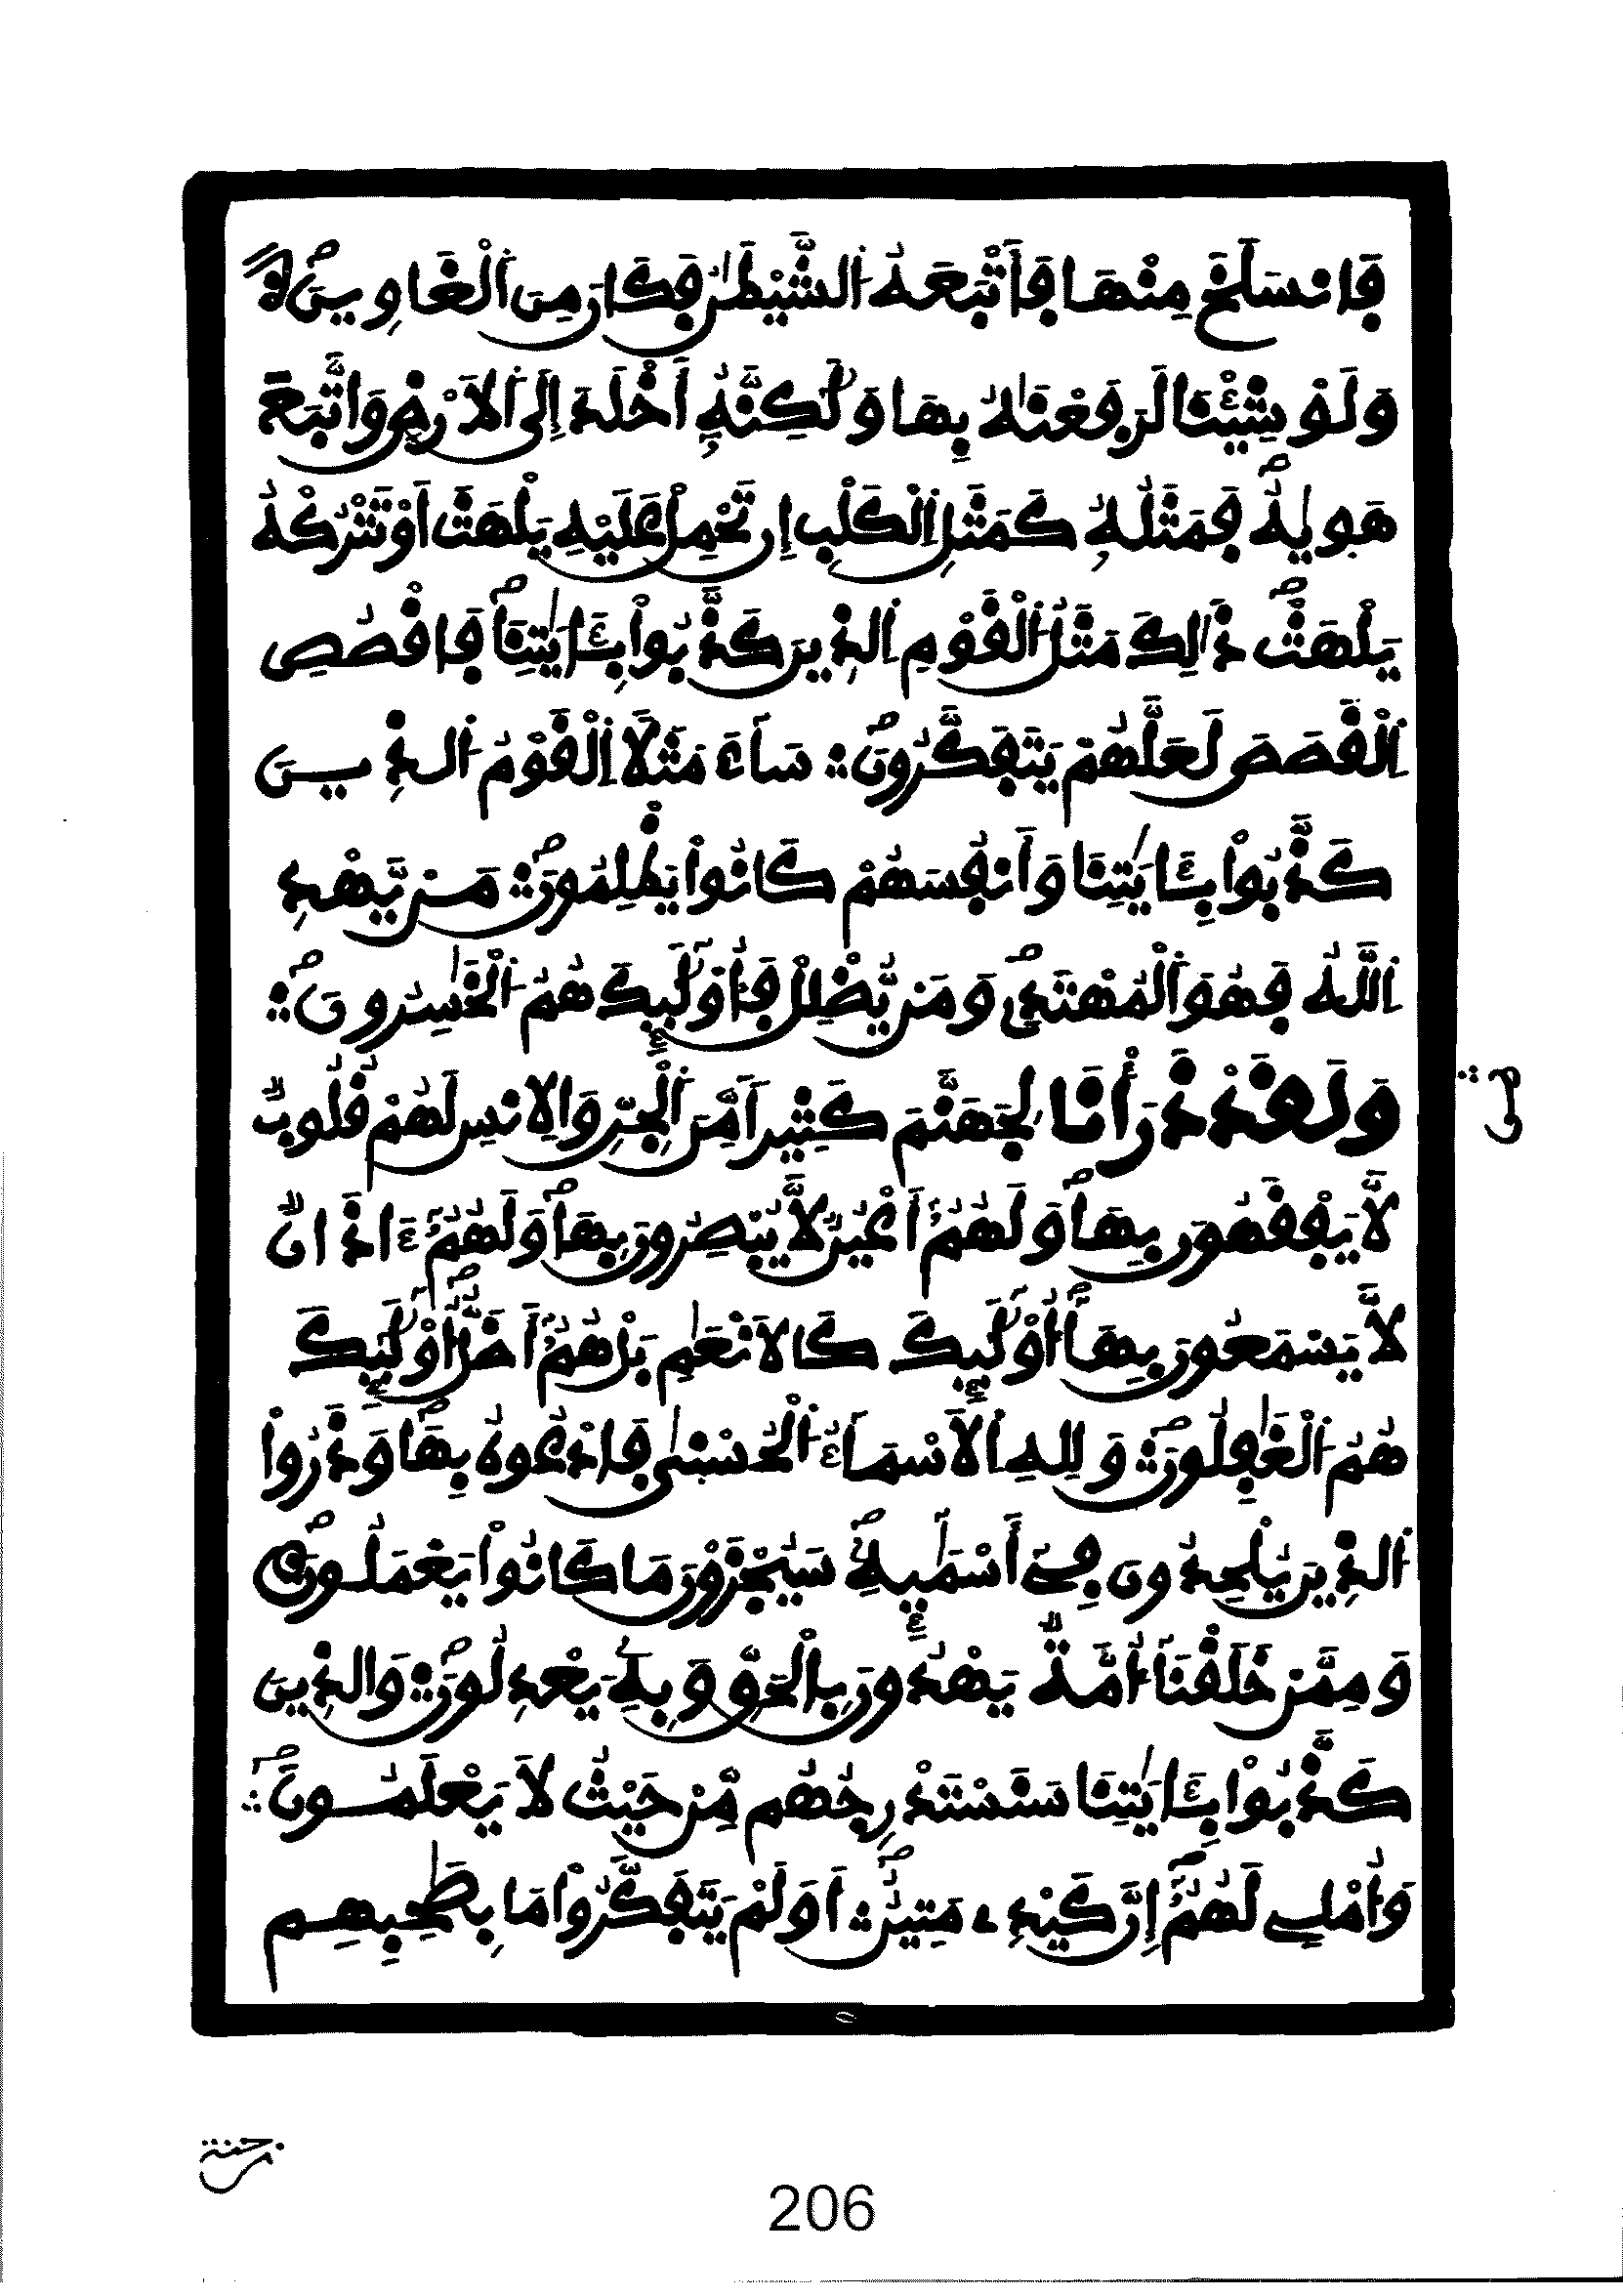 فَانسَلَخَ مِنْهَا فَأَتْبَعَهُ الشَّيْطَٰنُ فَكَانَ مِنَ الْغَاوِينَ
وَلَوْ شِئْنَا لَرَفَعْنَٰهُ بِهَا وَلَٰكِنَّهُۥ أَخْلَدَ إِلَى الَارْضِ وَاتَّبَعَ
هَوٜيٰهُ فَمَثَلُهُۥ كَمَثَلِ الْكَلْبِ إِن تَحْمِلْ عَلَيْهِ يَلْهَثْ أَوْ تَتْرُكْهُ
يَلْهَث ذَّٰلِكَ مَثَلُ الْقَوْمِ الذِينَ كَذَّبُواْ بِـَٔايَٰتِنَا فَاقْصُصِ
الْقَصَصَ لَعَلَّهُمْ يَتَفَكَّرُونَ سَآءَ مَثَلًا الْقَوْمُ الذِيــنَ
كَذَّبُواْ بِـَٔايَٰتِنَا وَأَنفُسَهُمْ كَانُواْ يَظْلِمُونَ مَــنْ يَّهْدِ
اللَّهُ فَهُوَ الْمُهْتَدِي وَمَنْ يُّضْلِلْ فَأُوْلَٰٓئِكَ هُمُ الْخَٰسِرُونَ
وَلَقَدْ ذَرَأْنَا لِجَهَنَّمَ كَثِيراً مِّنَ الْجِنِّ وَالِانسِ لَهُمْ قُلُوبٌ
لَّا يَفْقَهُونَ بِهَا وَلَهُمُۥٓ أَعْيُنٌ لَّا يُبْصِرُونَ بِهَا وَلَهُمُۥٓ ءَاذَانٌ
لَّا يَسْمَعُونَ بِهَآ أُوْلَٰٓئِكَ كَالَانْعَٰمِ بَلْ هُمُۥٓ أَضَلُّ أُوْلَٰٓئِكَ
هُمُ الْغَٰفِلُونَ وَلِلهِ الَاسْمَآءُ الْحُسْنٜيٰ فَادْعُوهُ بِهَا وَذَرُواْ
الذِينَ يُلْحِدُونَ فِيٓ أَسْمَٰٓئِهِۦ سَيُجْزَوْنَ مَا كَانُواْ يَعْمَلُــونَ
وَمِمَّنْ خَلَقْنَآ أُمَّةٌ يَهْدُونَ بِالْحَقِّ وَبِهِۦ يَعْدِلُونَ وَالذِينَ
كَذَّبُواْ بِـَٔايَٰتِنَا سَنَسْتَدْرِجُهُم مِّنْ حَيْثُ لَا يَعْلَمُــونَ
وَأُمْلِي لَهُمُۥٓ إِنَّ كَيْدِے مَتِينٌ اَوَلَمْ يَتَفَكَّرُواْ مَا بِصَٰحِبِهِــم
206